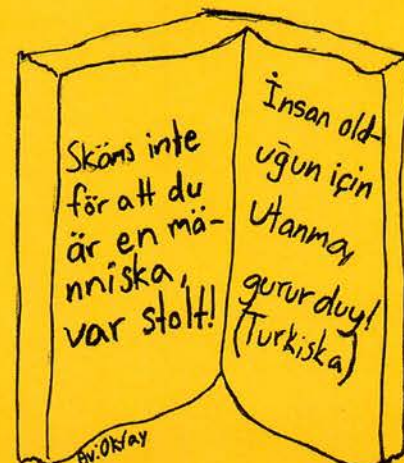 Skäms inte
för att du
är en mä-
nniska,
var stolt!
İnsan old-
uğun için
utanma,
gurur duy!
(Turkiska)
Av: Oktay